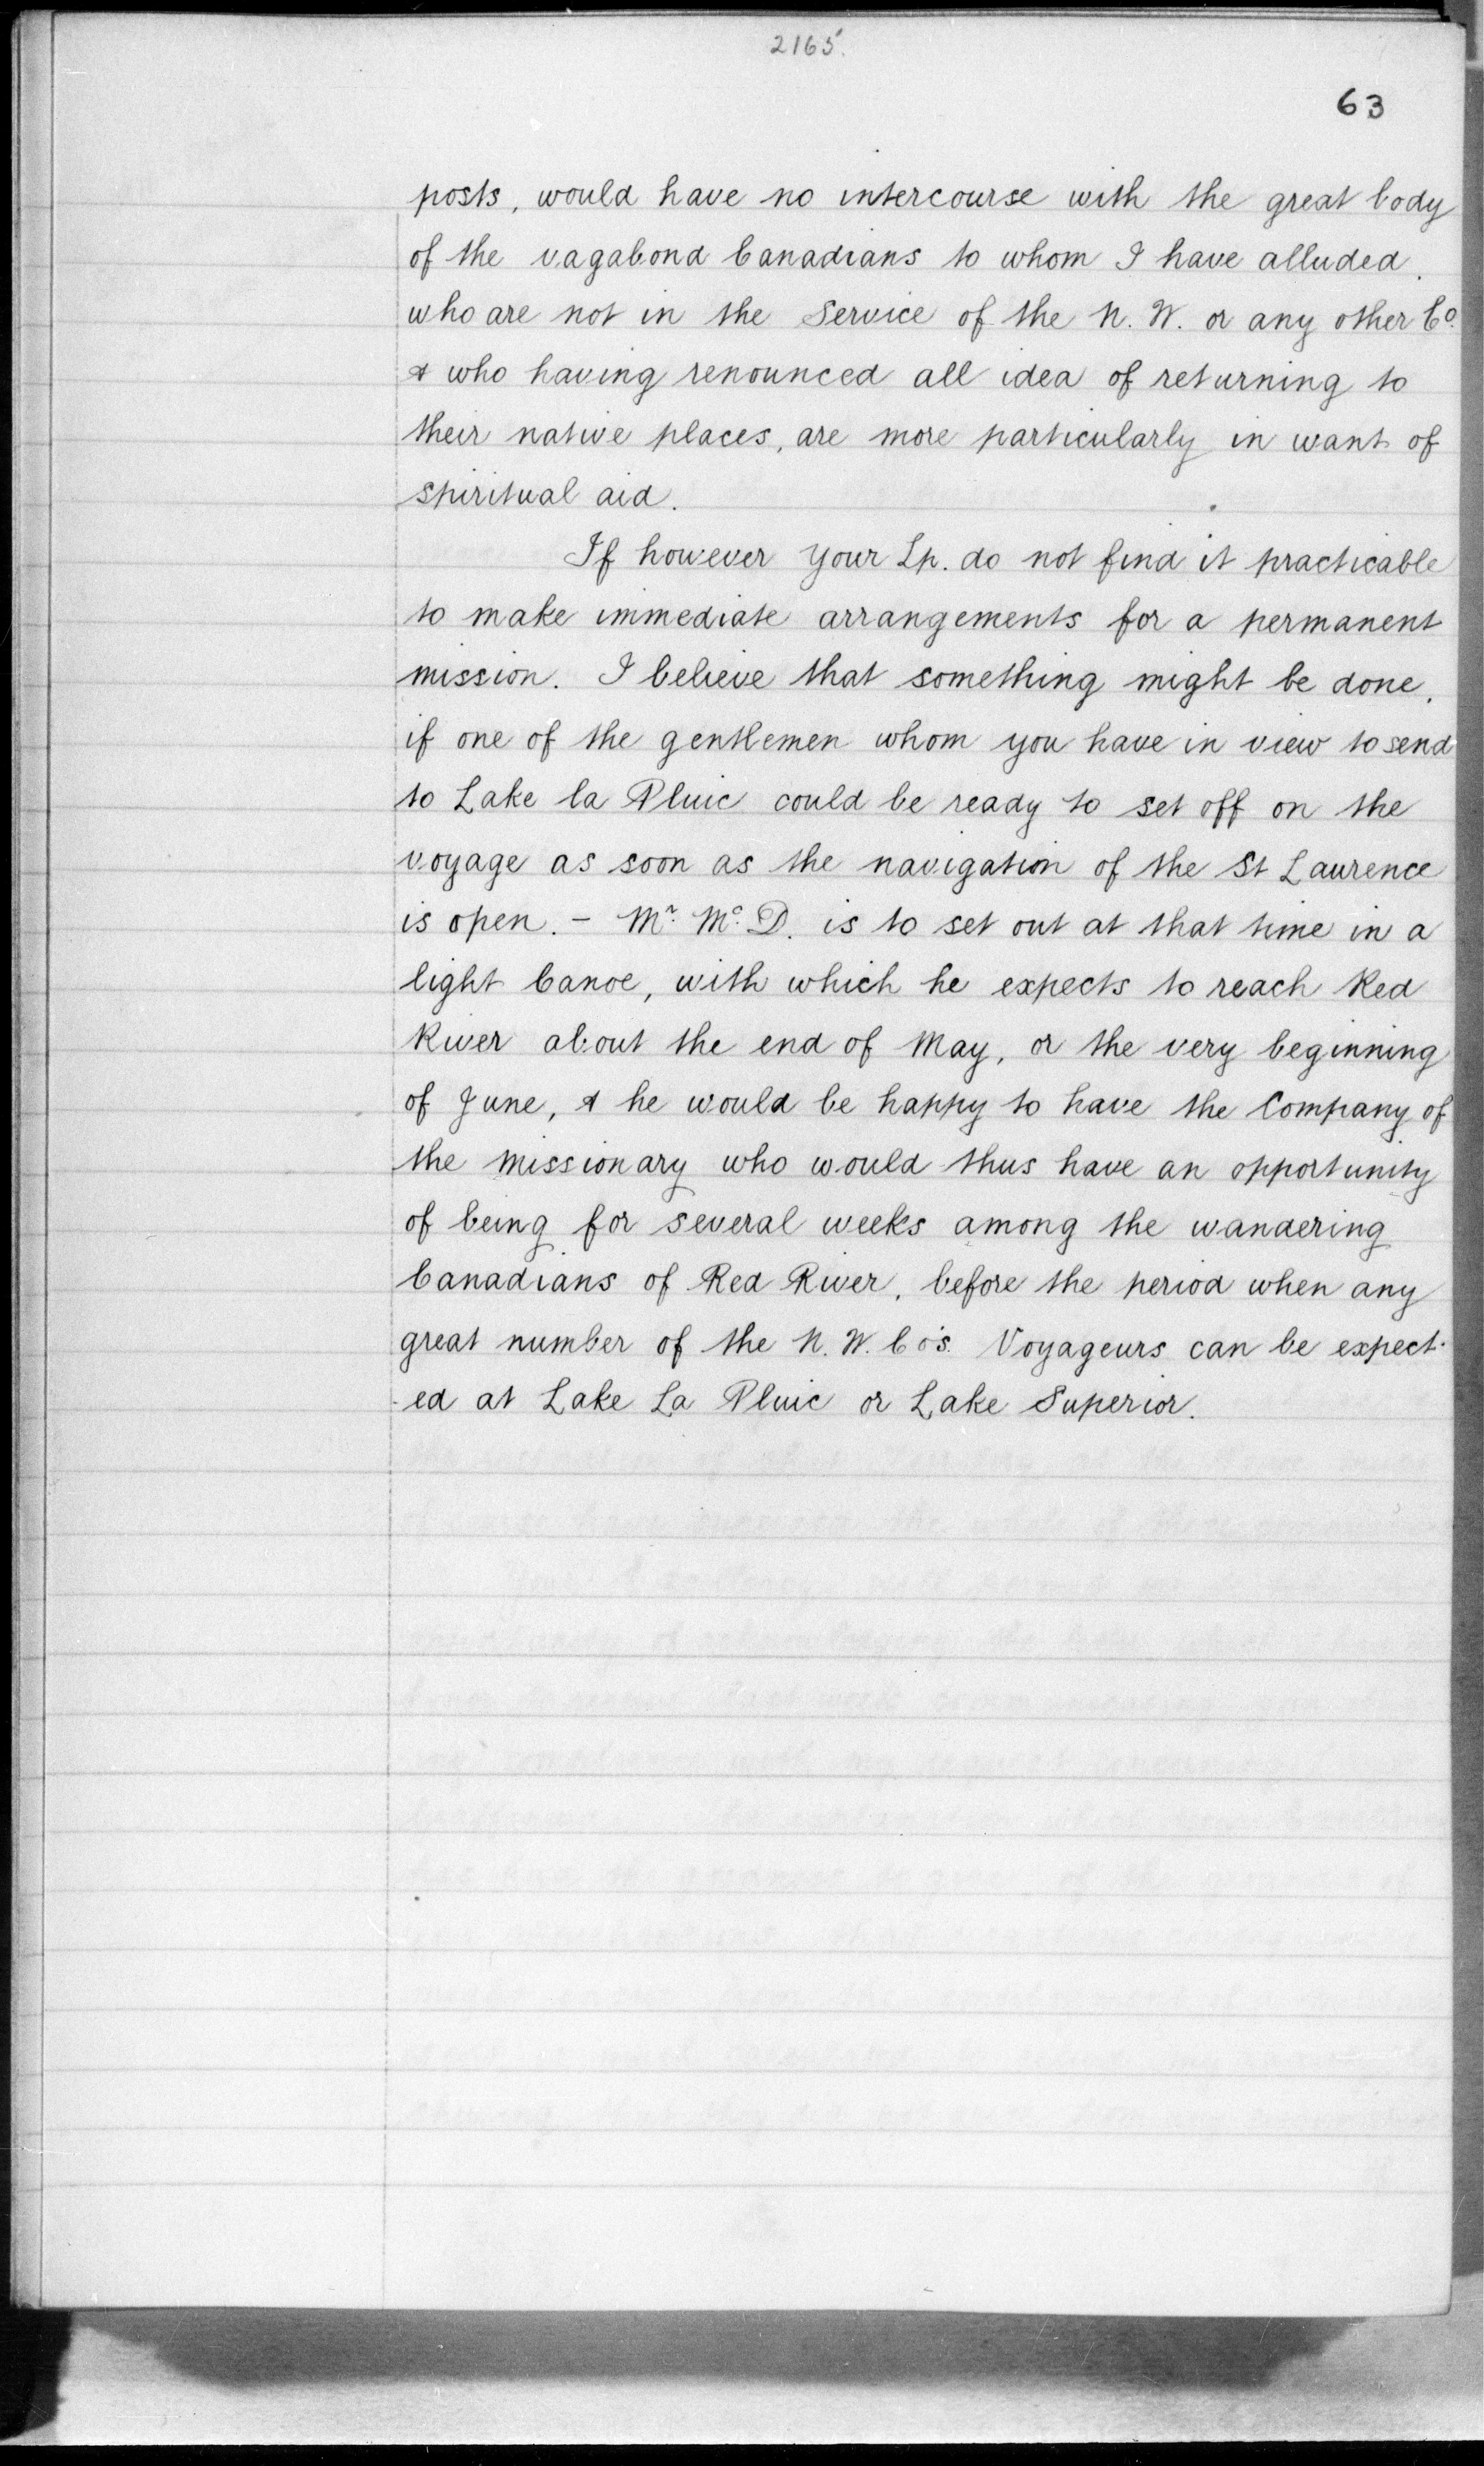 2165.
63
posts, would have no intercourse with the great body
of the vagabond Canadians to whom I have alluded.
who are not in the Service of the N. W. or any other Co.
& who having renounced all idea of returning to
their native places, are more particularly in want of
spiritual aid.
If however your Lp. do not find it practicable
to make immediate arrangements for a permanent
mission. I believe that something might be done.
if one of the gentlemen whom you have in view to send
to Lake la Pluie could be ready to set off on the
voyage as soon as the navigation of the St Laurence
is open. - Mr. Mc. D. is to set out at that time in a
light Canoe, with which he expects to reach Red
River about the end of May, or the very beginning
of June, & he would be happy to have the Company of
the missionary who would thus have an opportunity
of being for several weeks among the wandering
Canadians of Red River, before the period when any
great number of the N. W. Co's. Voyageurs can be expect-
-ed at Lake La Pluie or Lake Superior.